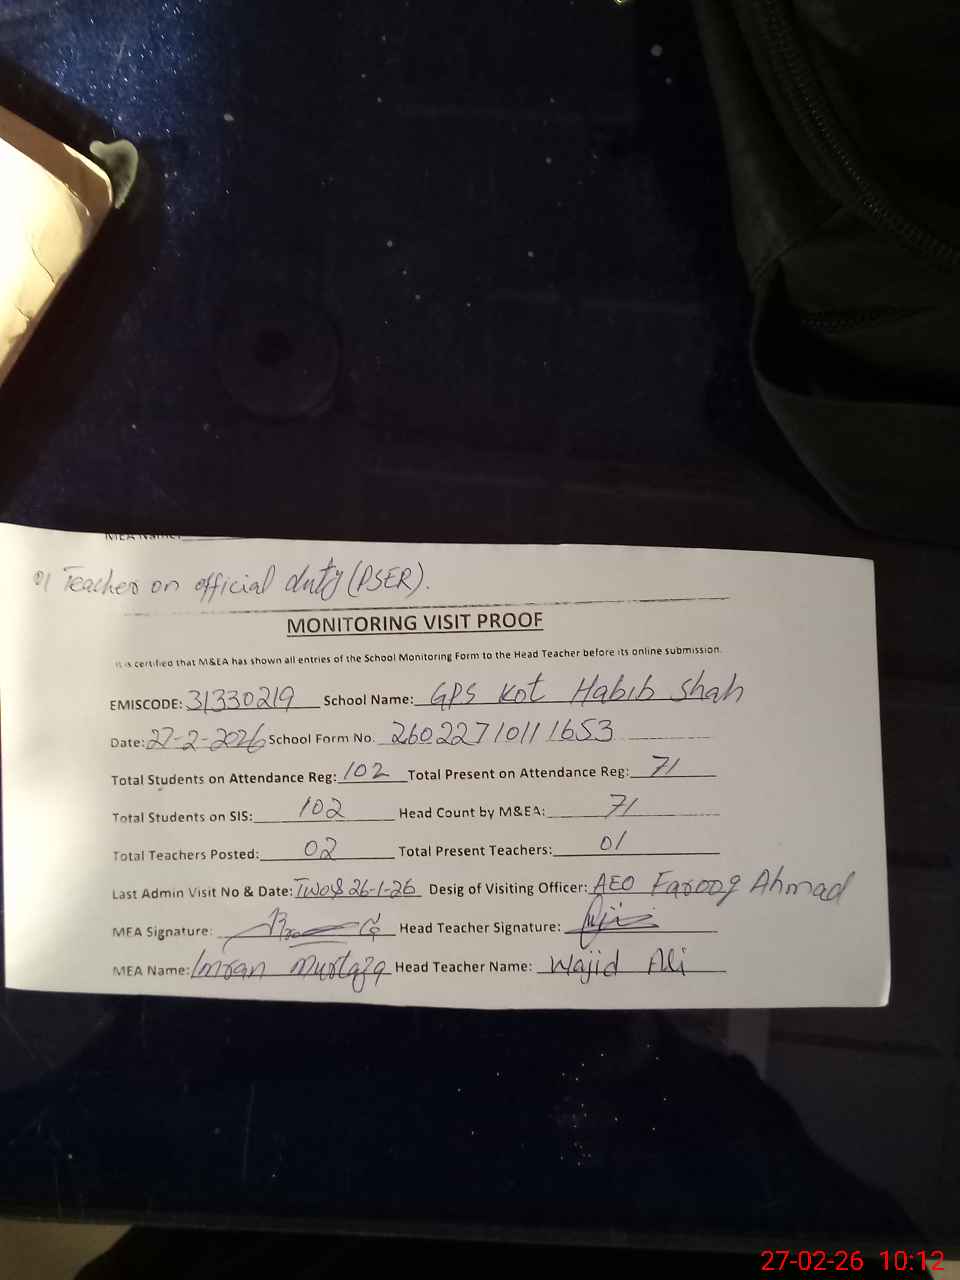 MEA Name:
01 Teacher on official duty (PSER).
MONITORING VISIT PROOF
It is certified that M&EA has shown all entries of the School Monitoring Form to the Head Teacher before its online submission.
EMISCODE: 31330219 School Name: GPS Kot Habib Shah
Date: 27-2-2026 School Form No. 26022710111653
Total Students on Attendance Reg: 102 Total Present on Attendance Reg: 71
Total Students on SIS: 102 Head Count by M&EA: 71
Total Teachers Posted: 02 Total Present Teachers: 01
Last Admin Visit No & Date: Two& 26-1-26 Desig of Visiting Officer: AEO Farooq Ahmad
MEA Signature: Head Teacher Signature:
MEA Name: Imran Murtaza Head Teacher Name: Wajid Ali
27-02-26 10:12